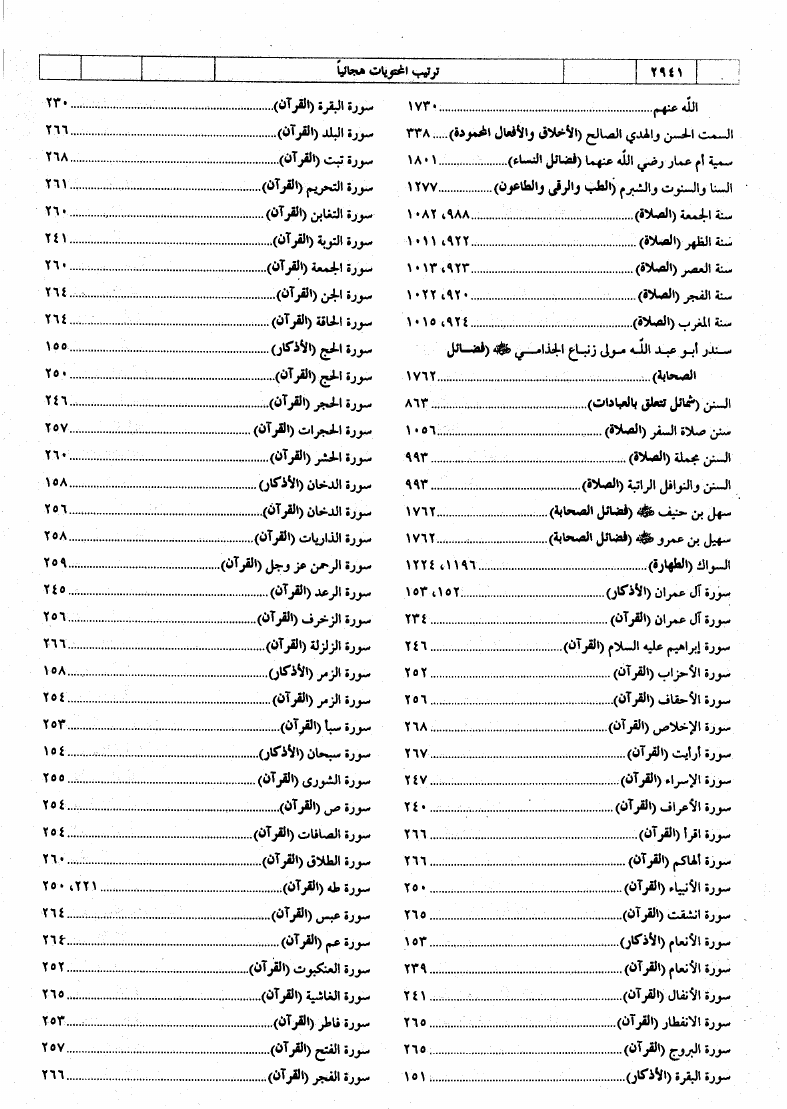 ٢٩٤١
ترتيب المحتويات هجائياً
الله عنهم ........ ١٧٣٠
السمت الحسن والهدي الصالح (الأخلاق والأفعال المحمودة) ..... ٣٣٨
سمية أم عمار رضي الله عنهما (فضائل النساء) ........ ١٨٠١
السنا والسنوت والشبرم (الطب والرقى والطاعون) ........ ١٢٧٧
سنة الجمعة (الصلاة) ........ ٩٨٨، ١٠٨٢
سنة الظهر (الصلاة) ........ ٩٢٢، ١٠١١
سنة العصر (الصلاة) ........ ٩٢٣، ١٠١٣
سنة الفجر (الصلاة) ........ ٩٢٠، ١٠٢٢
سنة المغرب (الصلاة) ........ ٩٢٤، ١٠١٥
سندر أبو عبد الله مولى زنباع الجذامي ﷺ (فضائل
الصحابة) ........ ١٧٦٢
السنن (شمائل تتعلق بالعبادات) ........ ٨٦٣
سنن صلاة السفر (الصلاة) ........ ١٠٥٦
السنن مجملة (الصلاة) ........ ٩٩٣
السنن والنوافل الراتبة (الصلاة) ........ ٩٩٣
سهل بن حنيف ﷺ (فضائل الصحابة) ........ ١٧٦٢
سهيل بن عمرو ﷺ (فضائل الصحابة) ........ ١٧٦٢
السواك (الطهارة) ........ ١١٩٦، ١٢٢٤
سورة آل عمران (الأذكار) ........ ١٥٢، ١٥٣
سورة آل عمران (القرآن) ........ ٢٣٤
سورة إبراهيم عليه السلام (القرآن) ........ ٢٤٦
سورة الأحزاب (القرآن) ........ ٢٥٢
سورة الأحقاف (القرآن) ........ ٢٥٦
سورة الإخلاص (القرآن) ........ ٢٦٨
سورة أرأيت (القرآن) ........ ٢٦٧
سورة الإسراء (القرآن) ........ ٢٤٧
سورة الأعراف (القرآن) ........ ٢٤٠
سورة اقرأ (القرآن) ........ ٢٦٦
سورة ألهاكم (القرآن) ........ ٢٦٦
سورة الأنبياء (القرآن) ........ ٢٥٠
سورة انشقت (القرآن) ........ ٢٦٥
سورة الأنعام (الأذكار) ........ ١٥٣
سورة الأنعام (القرآن) ........ ٢٣٩
سورة الأنفال (القرآن) ........ ٢٤١
سورة الانفطار (القرآن) ........ ٢٦٥
سورة البروج (القرآن) ........ ٢٦٥
سورة البقرة (الأذكار) ........ ١٥١
سورة البقرة (القرآن) ........ ٢٣٠
سورة البلد (القرآن) ........ ٢٦٦
سورة تبت (القرآن) ........ ٢٦٨
سورة التحريم (القرآن) ........ ٢٦١
سورة التغابن (القرآن) ........ ٢٦٠
سورة التوبة (القرآن) ........ ٢٤١
سورة الجمعة (القرآن) ........ ٢٦٠
سورة الجن (القرآن) ........ ٢٦٤
سورة الحاقة (القرآن) ........ ٢٦٤
سورة الحج (الأذكار) ........ ١٥٥
سورة الحج (القرآن) ........ ٢٥٠
سورة الحجر (القرآن) ........ ٢٤٦
سورة الحجرات (القرآن) ........ ٢٥٧
سورة الحشر (القرآن) ........ ٢٦٠
سورة الدخان (الأذكار) ........ ١٥٨
سورة الدخان (القرآن) ........ ٢٥٦
سورة الذاريات (القرآن) ........ ٢٥٨
سورة الرحمن عز وجل (القرآن) ........ ٢٥٩
سورة الرعد (القرآن) ........ ٢٤٥
سورة الزخرف (القرآن) ........ ٢٥٦
سورة الزلزلة (القرآن) ........ ٢٦٦
سورة الزمر (الأذكار) ........ ١٥٨
سورة الزمر (القرآن) ........ ٢٥٤
سورة سبأ (القرآن) ........ ٢٥٣
سورة سبحان (الأذكار) ........ ١٥٤
سورة الشورى (القرآن) ........ ٢٥٥
سورة ص (القرآن) ........ ٢٥٤
سورة الصافات (القرآن) ........ ٢٥٤
سورة الطلاق (القرآن) ........ ٢٦٠
سورة طه (القرآن) ........ ٢٢١، ٢٥٠
سورة عبس (القرآن) ........ ٢٦٤
سورة عم (القرآن) ........ ٢٦٤
سورة العنكبوت (القرآن) ........ ٢٥٢
سورة الغاشية (القرآن) ........ ٢٦٥
سورة فاطر (القرآن) ........ ٢٥٣
سورة الفتح (القرآن) ........ ٢٥٧
سورة الفجر (القرآن) ........ ٢٦٦